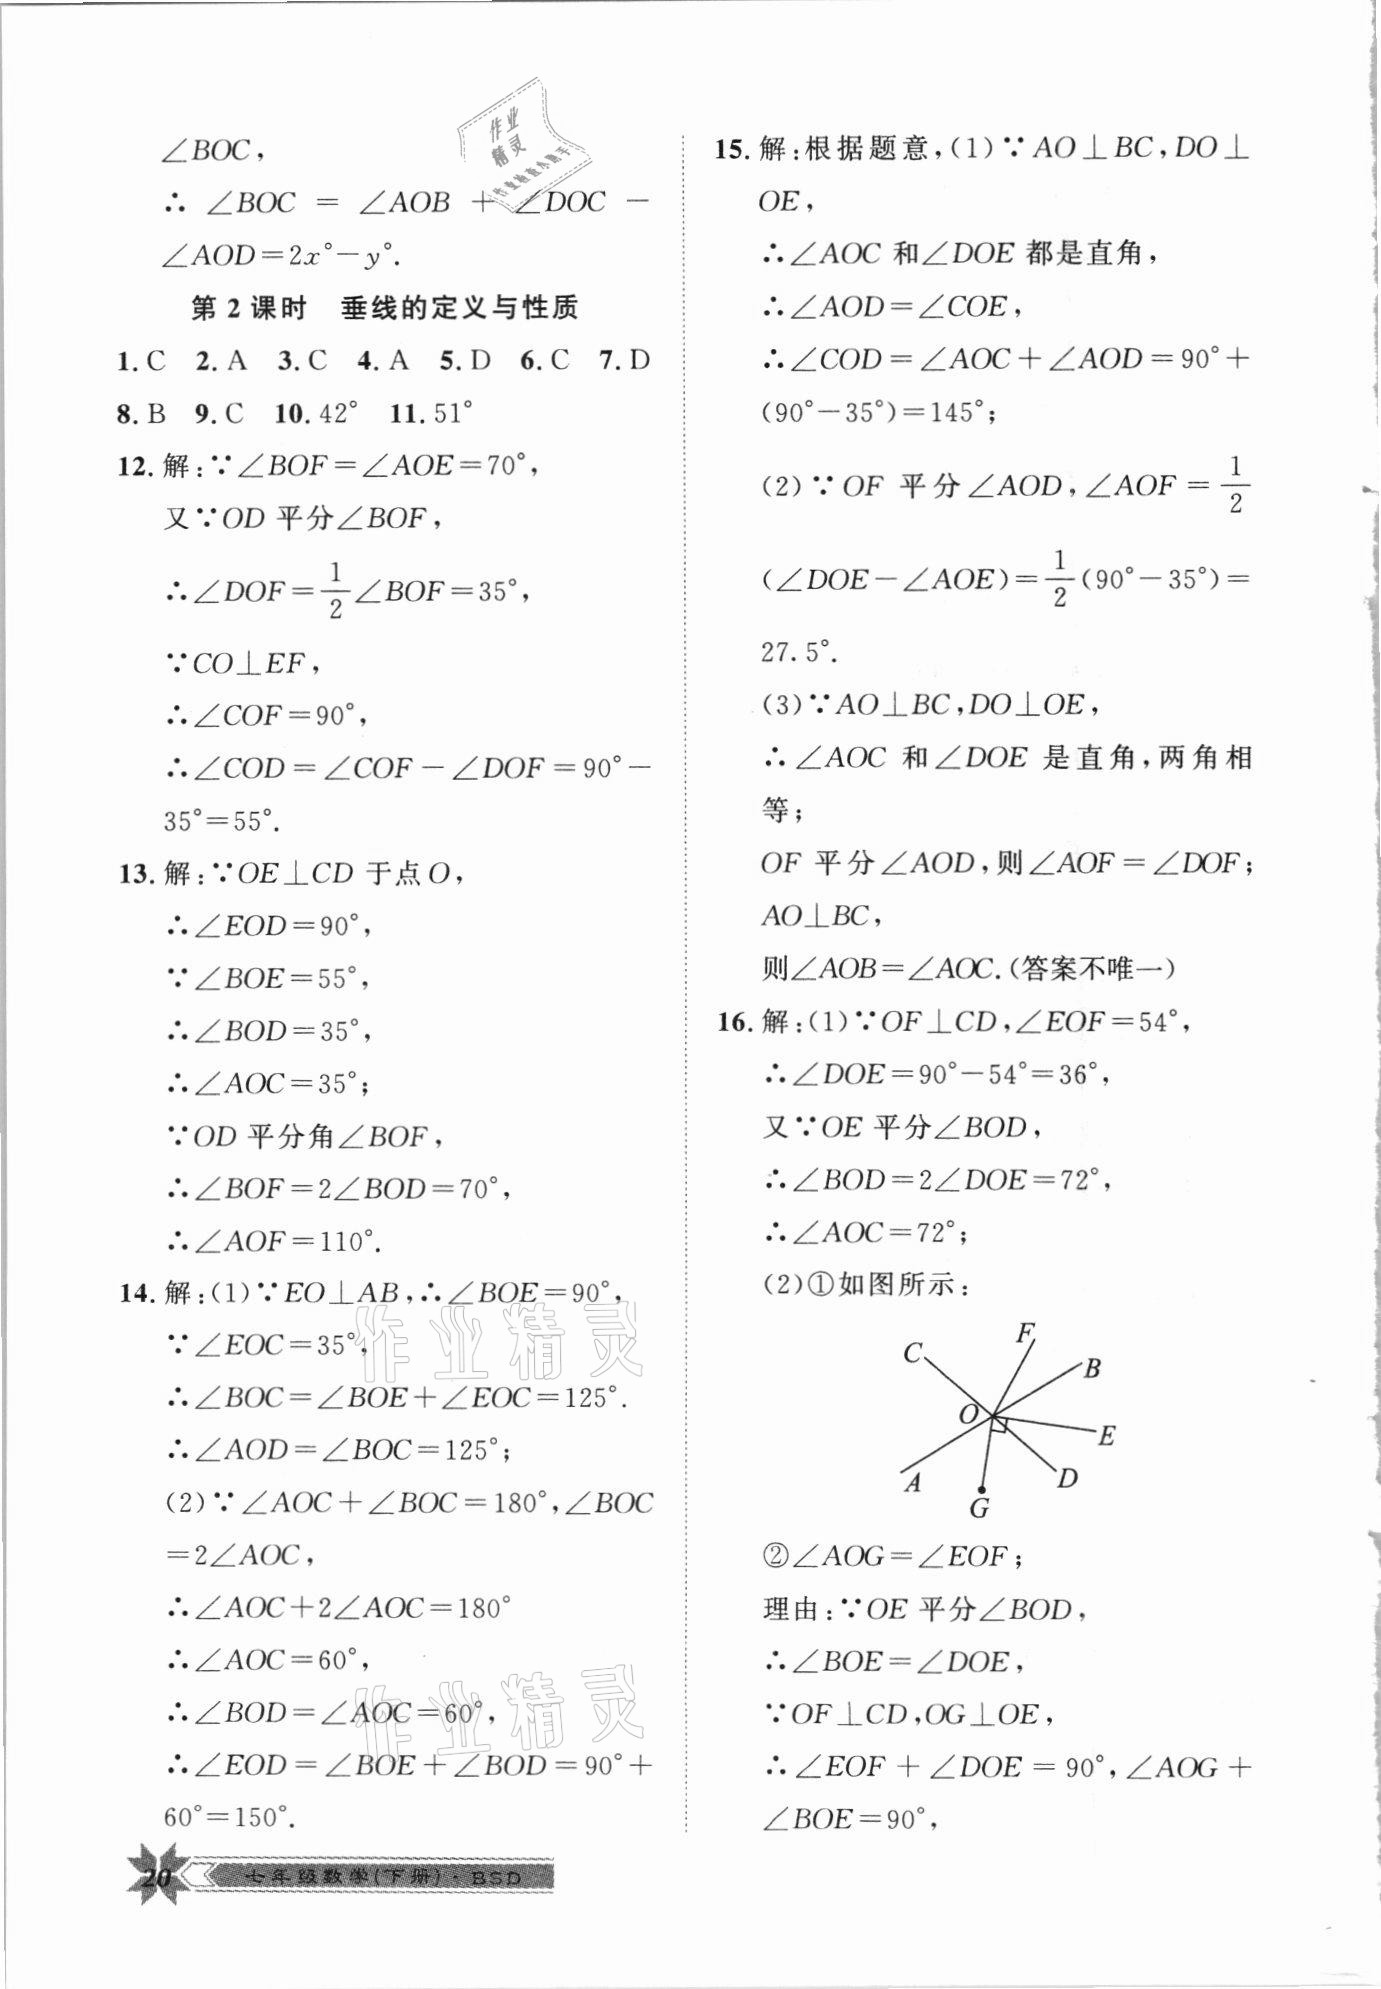 ∠BOC,
∴ ∠BOC = ∠AOB + ∠DOC -
∠AOD=2x°-y°.
第2课时 垂线的定义与性质
1. C 2. A 3. C 4. A 5. D 6. C 7. D
8. B 9. C 10. 42° 11. 51°
12. 解:∵∠BOF=∠AOE=70°,
又∵OD 平分∠BOF,
∴∠DOF=1/2∠BOF=35°,
∵CO⊥EF,
∴∠COF=90°,
∴∠COD=∠COF-∠DOF=90°-
35°=55°.
13. 解:∵OE⊥CD 于点O,
∴∠EOD=90°,
∵∠BOE=55°,
∴∠BOD=35°,
∴∠AOC=35°;
∵OD 平分角∠BOF,
∴∠BOF=2∠BOD=70°,
∴∠AOF=110°.
14. 解:(1)∵EO⊥AB,∴∠BOE=90°,
∵∠EOC=35°,
∴∠BOC=∠BOE+∠EOC=125°.
∴∠AOD=∠BOC=125°;
(2)∵∠AOC+∠BOC=180°,∠BOC
=2∠AOC,
∴∠AOC+2∠AOC=180°
∴∠AOC=60°,
∴∠BOD=∠AOC=60°,
∴∠EOD=∠BOE+∠BOD=90°+
60°=150°.
20 七年级数学(下册)·BSD
15. 解:根据题意,(1)∵AO⊥BC,DO⊥
OE,
∴∠AOC 和∠DOE 都是直角,
∴∠AOD=∠COE,
∴∠COD=∠AOC+∠AOD=90°+
(90°-35°)=145°;
(2)∵OF 平分∠AOD,∠AOF=1/2
(∠DOE-∠AOE)=1/2(90°-35°)=
27.5°.
(3)∵AO⊥BC,DO⊥OE,
∴∠AOC 和∠DOE 是直角,两角相
等;
OF 平分∠AOD,则∠AOF=∠DOF;
AO⊥BC,
则∠AOB=∠AOC.(答案不唯一)
16. 解:(1)∵OF⊥CD,∠EOF=54°,
∴∠DOE=90°-54°=36°,
又∵OE 平分∠BOD,
∴∠BOD=2∠DOE=72°,
∴∠AOC=72°;
(2)①如图所示:
F
C
B
O
E
A
D
G
②∠AOG=∠EOF;
理由:∵OE 平分∠BOD,
∴∠BOE=∠DOE,
∵OF⊥CD,OG⊥OE,
∴∠EOF+∠DOE=90°,∠AOG+
∠BOE=90°,
作业
精灵
作业精灵
作业精灵